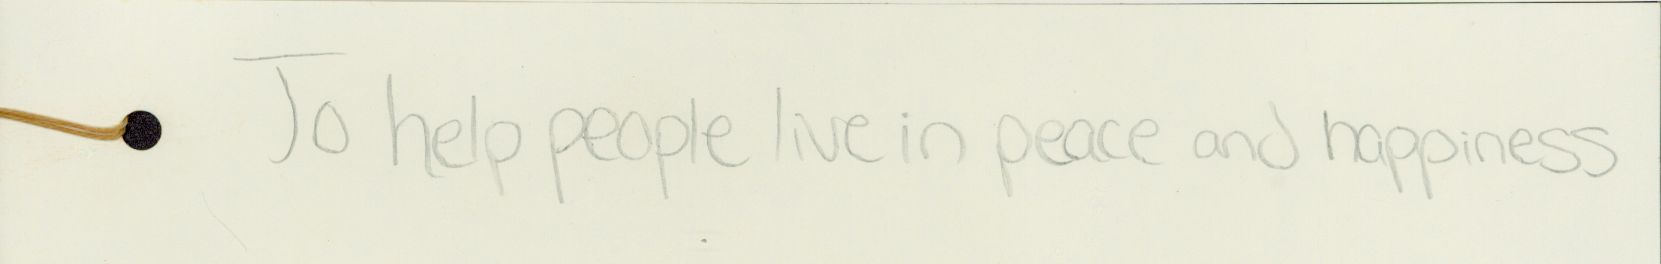 To help people live in peace and happiness